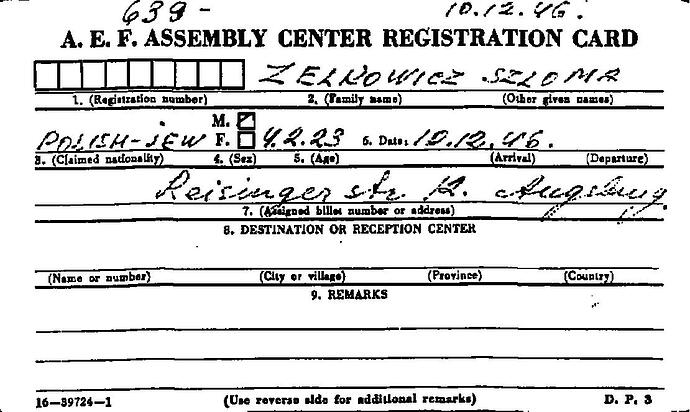 639- 10.12.46.
A. E. F. ASSEMBLY CENTER REGISTRATION CARD
ZELKOWICZ SZLOMA
1. (Registration number) 2. (Family name) (Other given names)
M.
POLISH-JEW F. 4.2.23 6. Date: 10.12.46.
3. (Claimed nationality) 4. (Sex) 5. (Age) (Arrival) (Departure)
Reisinger str. 12. Augsburg
7. (Assigned billet number or address)
8. DESTINATION OR RECEPTION CENTER
(Name or number) (City or village) (Province) (Country)
9. REMARKS
16—39724-1 (Use reverse side for additional remarks) D. P. 3